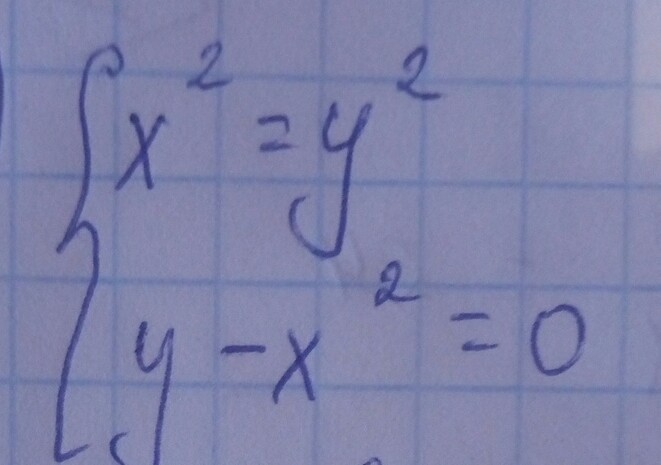 x² = y²
y - x² = 0